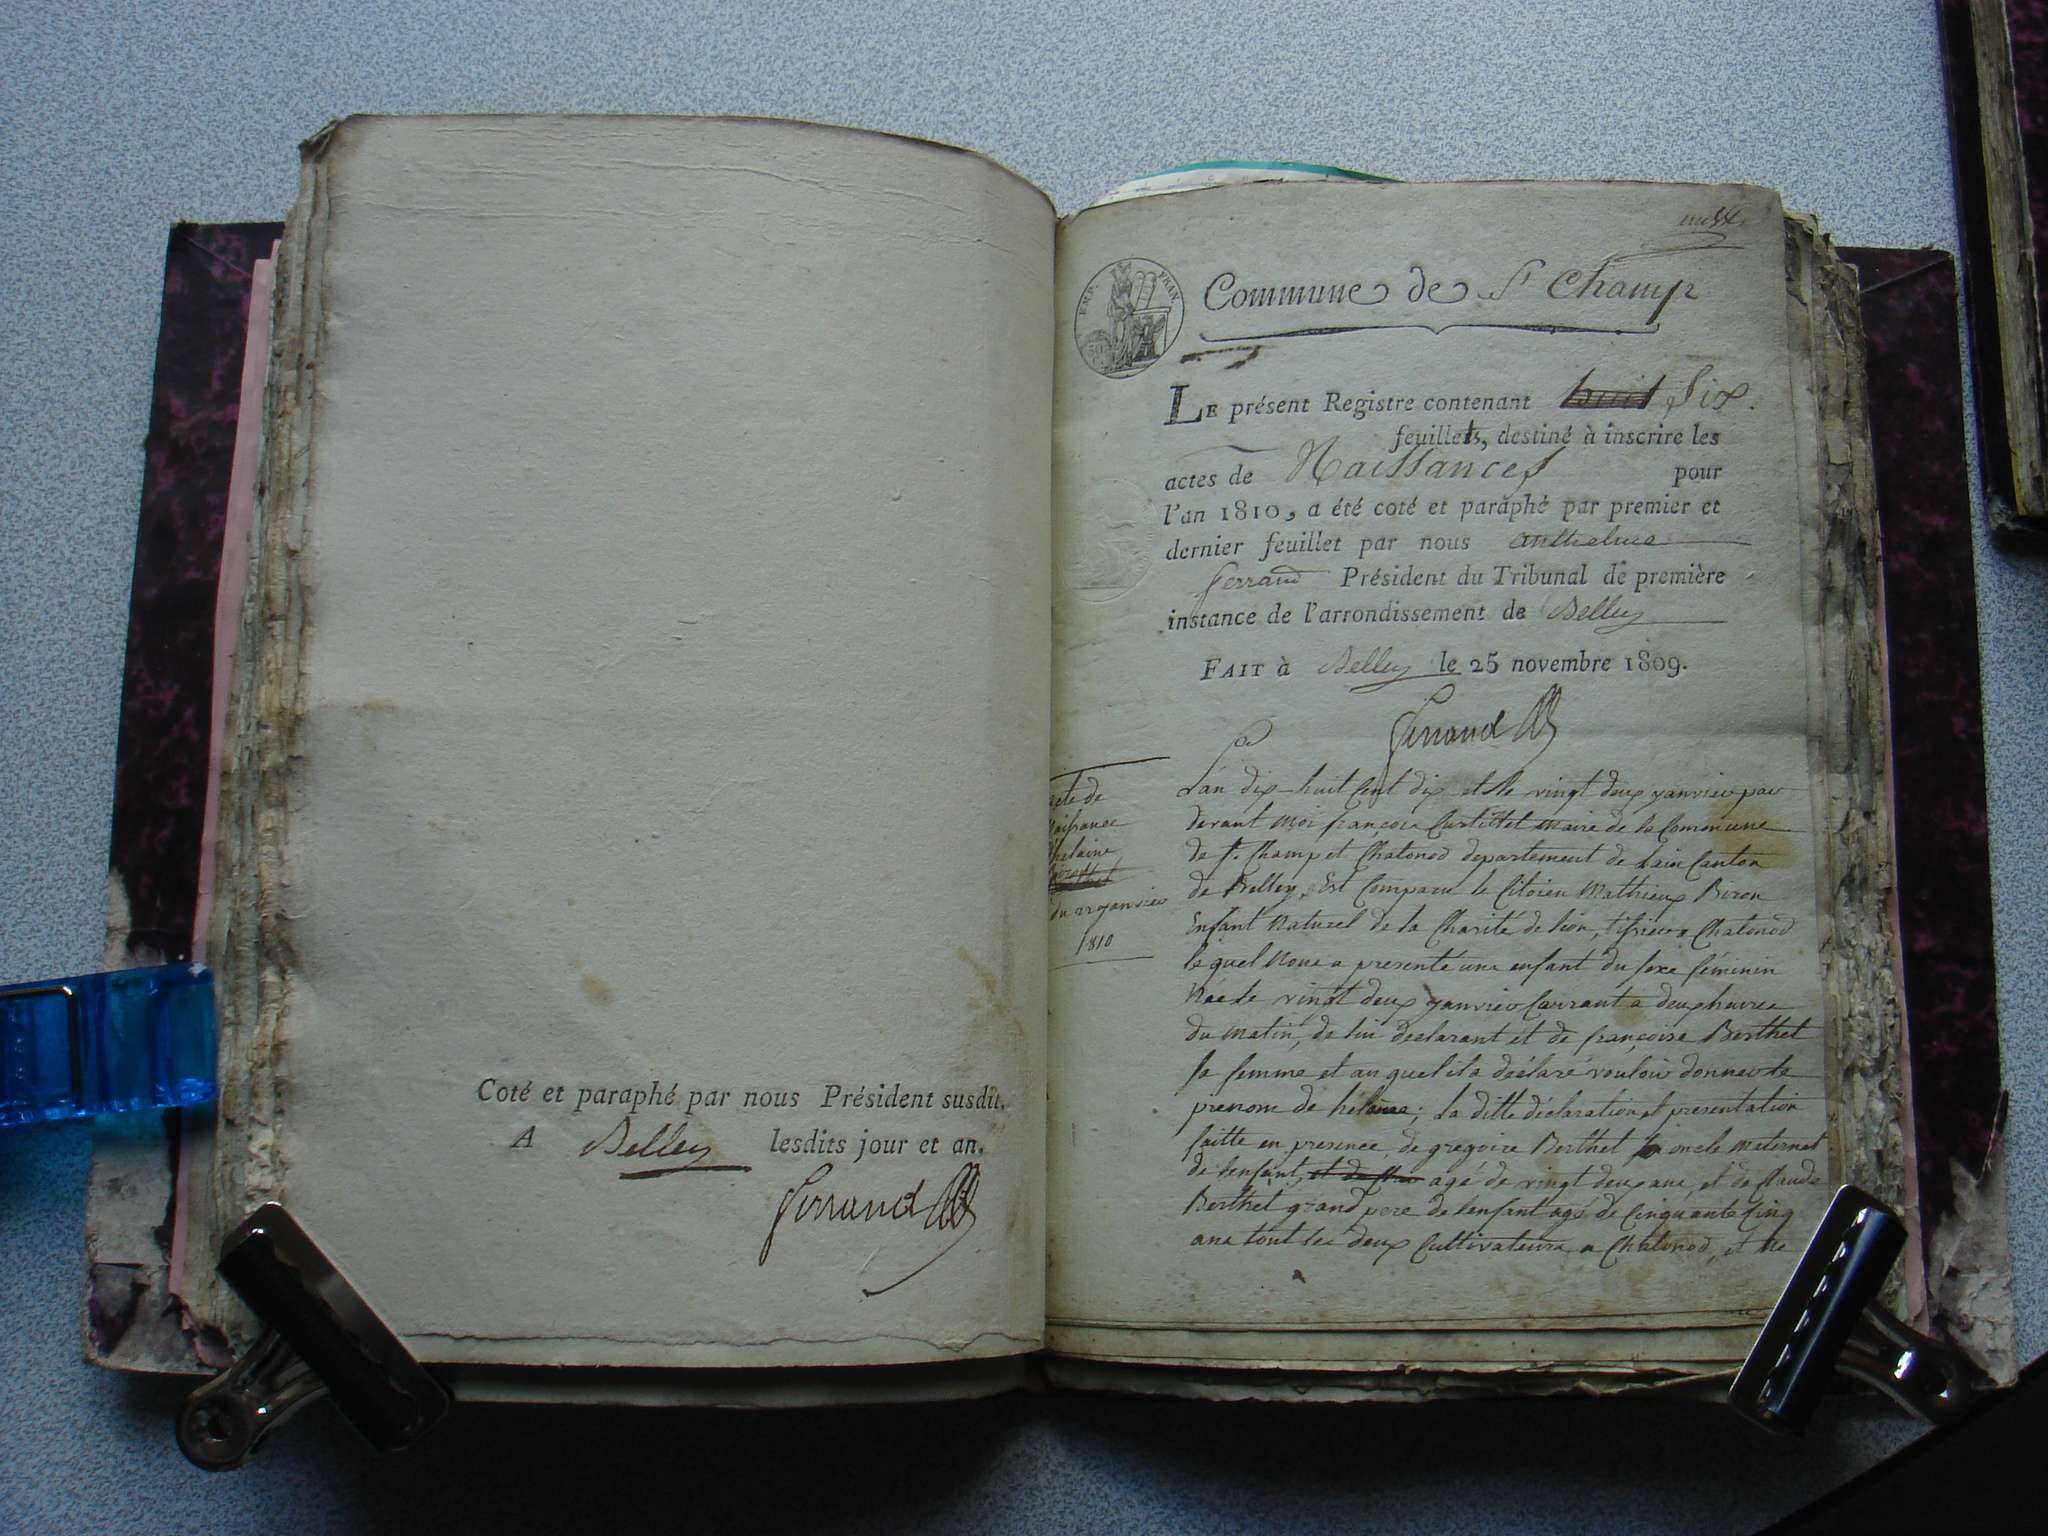 Coté et paraphé par nous Président susdit.
A Belley lesdits jour et an.
Ferrand
EMP. FRAN
Commune de St Champ
LE présent Registre contenant huit Six.
feuillets, destiné à inscrire les
actes de Naissances pour
l'an 1810, a été coté et paraphé par premier et
dernier feuillet par nous anthelme
ferrand Président du Tribunal de première
instance de l'arrondissement de Belley
FAIT à Belley le 25 novembre 1809.
Ferrand
acte de
Naissance
du 22 janvier
1810
L'an dix-huit cent dix et le vingt deux janvier par
devant moi françois maire de la Commune
de St. Champ et Chatonod departement de Lain Canton
de Belley, Est Comparu le Citoien Mathieux Biron
Enfant Naturel de la Charité de lion, tisseur a Chatonod
lequel Nous a presenté une enfant du sexe féminin
Née le vingt deux janvier Courrant a deux heures
du matin, de lui déclarant et de françoise Berthet
sa femme et auquel il a déclaré vouloir donner le
prenom de hélaine; la ditte déclaration et presentation
faitte en presence de gregoire Berthet oncle maternel
de lenfant, agé de vingt deux ans, et de Claude
Berthet grand pere de lenfant agé de Cinquante Cinq
ans tout les deux Cultivateurs a Chatonod, et ne